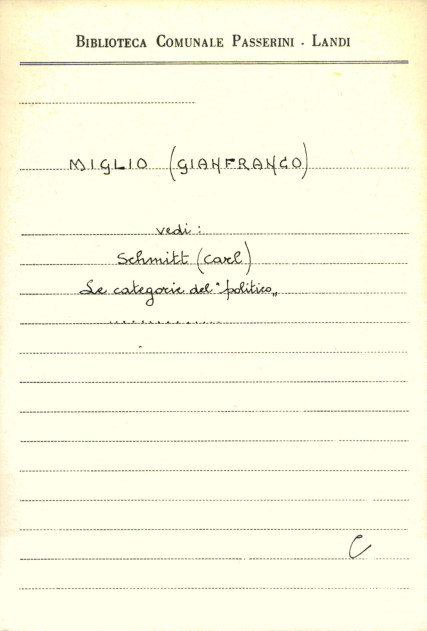 BIBLIOTECA COMUNALE PASSERINI - LANDI
MIGLIO (GIANFRANCO)
vedi:
Schmitt (Carl)
Le categorie del "politico„
.............
C